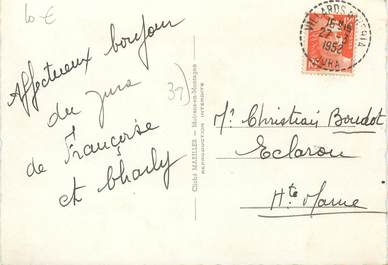 10 €
Affectueux bonjour
du Jura
de Françoise
et Charly
39)
Cliché MAILLER - Moirans-en-Montagne
REPRODUCTION INTERDITE
VILLARDS D'HERIA
16 H 15
22 - 3
1952
JURA
Mr Christian Boudot
Eclaron
Hte Marne